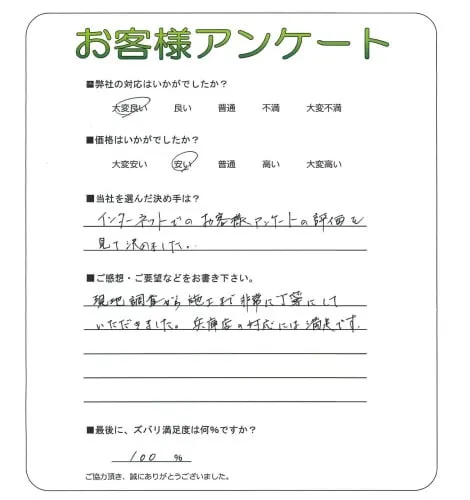 お客様アンケート
■弊社の対応はいかがでしたか？
大変良い 良い 普通 不満 大変不満
■価格はいかがでしたか？
大変安い 安い 普通 高い 大変高い
■当社を選んだ決め手は？
インターネットでのお客様アンケートの評価を
見て決めました。
■ご感想・ご要望などをお書き下さい。
現地調査から施工まで非常に丁寧にして
いただきました。兵庫店の対応には満足です。
■最後に、ズバリ満足度は何％ですか？
100 ％
ご協力頂き、誠にありがとうございました。